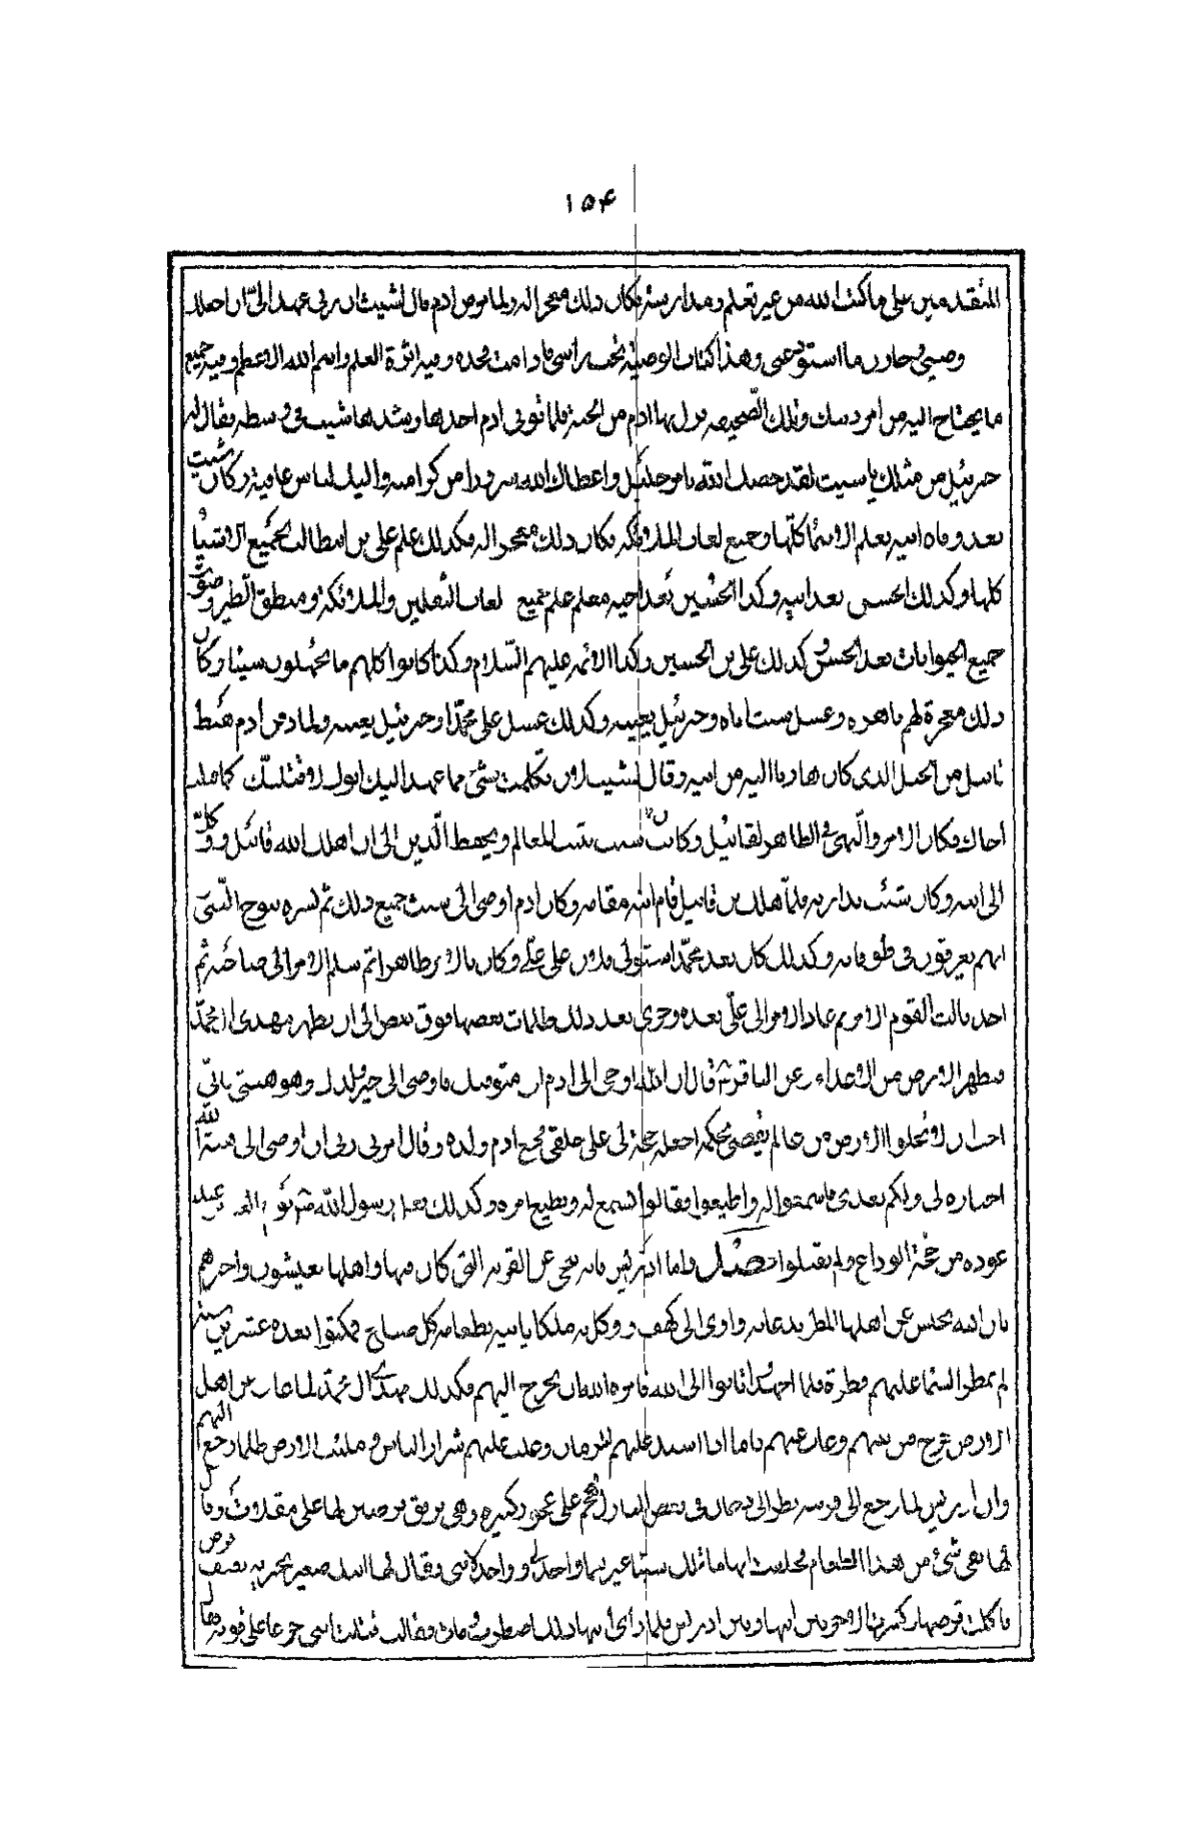 ١٥۴
المتقدمين على ما كتب الله من غير تعلم ومدارسته فكان ذلك معجزا له ولما مرض ادم قال لشيث ان ربى عهد الىّ ان اجعلك
وصيى وخازن ما استودعنى وهذا كتاب الوصية تحت راسى فاذا مت فخذه وفيه اثرة العلم واسم الله الاعظم وفيه جميع
ما يحتاج اليه من امر دينك وتلك الصّحيفه نزل بها ادم من الجنة فلما توفى ادم اخذها وشدها شيث فى وسطه فقال له
جبرئيل من مثلك يا شيث لقد خصك الله بامر جليل واعطاك الله سرورا من كرامته والبسك لباس عافية وكان شيث
بعد وفاه ابيه يعلم الاسماء كلّها وجميع لغات الملائكه فكان ذلك معجزا له فكذلك علم على بن ابيطالب لجميع الاشياء
كلها وكذلك الحسن بعد ابيه وكذا الحسين بعد اخيه معلم علم جميع لغات الثقلين والملائكة ومنطق الطير وصوت
جميع الحيوانات بعد الحسن وكذلك على بن الحسين وكذا الائمه عليهم السّلام وكذا كانوا كلهم ما يجهلون شيئا وكان
ذلك معجزة لهم باهره وغسل شيث اباه وجبرئيل يعينه وكذلك غسل على محمّدا وجبرئيل يعينه ولما دفن ادم هبط
قابيل من الجبل الذى كان هاربا اليه من ابيه وقال لشيث ان تكلمت بشئ مما عهد اليك ابوك لاقتلنّك كما قتلت
اخاك فكان الامر والنّهى فى الظاهر لقابيل وكان شيث يثبت المعالم ويحفظ الدّين الى ان اهلك الله قابيل ووكّله
الى ابنه وكان شيث يداريه فلمّا هلك بن قابيل قام ابنه مقامه وكان ادم اوصى الى شيث جميع ذلك ثم بشره بنوح النّبىّ
انهم يغرقون فى طوفانه وكذلك كان بعد محمّد استولى فلان على علىّ وكان بالامر ظاهرا ثم سلم الامر الى صاحبه ثم
اخذ ثالث القوم الامر ثم عاد الامر الى علىّ بعده وجرى بعد ذلك ظلمات بعضها فوق بعض الى ان يظهر مهدى ال محمّد
فيطهر الارض من الاعداء وعن الباقر ع قال ان الله اوحى الى ادم انى متوفيك فاوص الى خير ولدك وهو هبتى فانّى
احب ان لا تخلو الارض من عالم يقضى بحكمى اجعله حجة لى على خلقى فجمع ادم ولده وقال امرنى ربى ان اوصى الى هبة الله
اختاره لى ولكم بعدى فاسمعوا له واطيعوا فقالوا نسمع له ونطيع امره وكذلك
عوده من حجة الوداع ولم يقبلوا فصل واما ادريس فانه تنحى عن القرية التى كان فيها واهلها يعيشون واخبرهم
بان الله يحبس عن اهلها المطر بدعائه واوى الى كهف ووكل به ملكا ياتيه بطعامه كل صباح فمكثوا بعده عشرين سنة
لم تمطر السّماء عليهم قطرة فلما اجهدوا تابوا الى الله فامره الله ان يخرج اليهم فكذلك مهدى ال محمّد لما عاب من اهل
الارض خرج من بينهم وغاب عنهم فاما اذا اشتد عليهم الزمان وغلب عليهم شرار الناس وملئت الارض ظلما رجع اليهم
وان ادريس لما رجع الى قومه نظر الى دخان فى بعض المنازل فهجم على عجوز كبيره وهى ترقق قرصين لها على مقلات وقال
لها بيعى شئ من هذا الطعام فحلفت انها ما تملك شيئا غيرهما واحد لى وواحد لابنى وقال لها ابنك صغير يجزيه نصف قرص
فاكلت قرصها وكسرت الاخر بين ابنها وبين ادريس فلما راى ابنها ذلك اضطرب فمات فقالت قتلت ابنى جزعا على قوته فقال